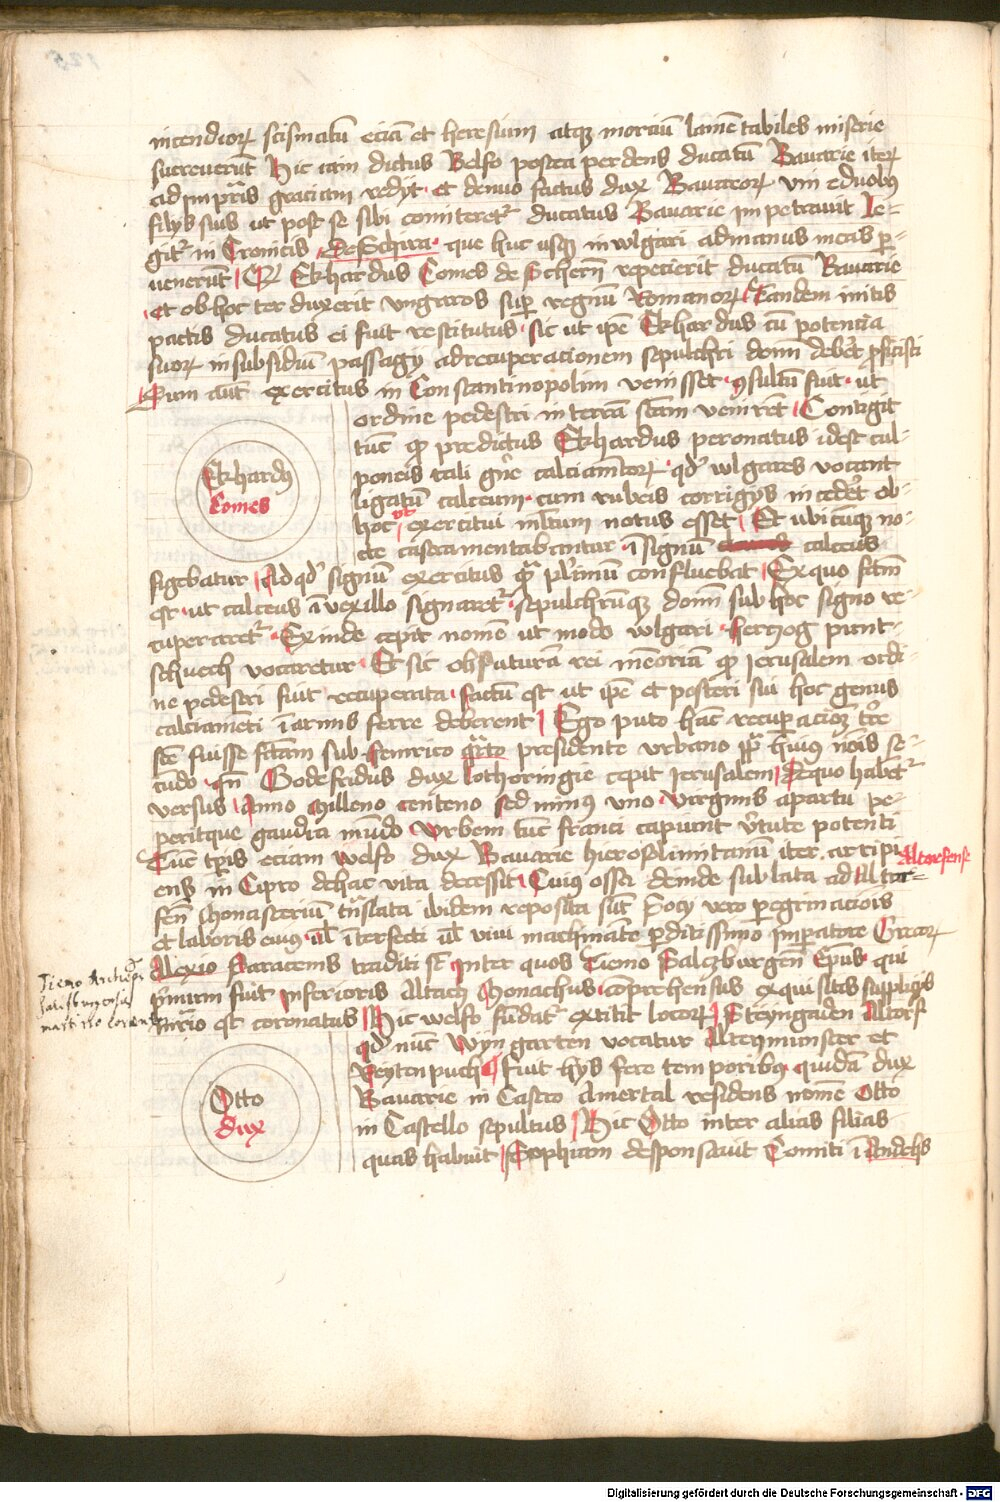 incendiorꝝ scismatũ eciã et heresium atqꝫ morciũ lamẽtabiles miserie
succreverũt Hic iam dictus Belfo postea perdens ducatũ Bavarie iterꝝ
ad imp̃ris graciam redijt et denuo factus dux Bavarorꝝ vni e duobꝯ
filijs suis ut post se sibi comiteretᷣ ducatus Bavarie impetravit Le-
gitᷣ in Cronicis de Schira que huc usqꝫ in wlgari ad manus meas ꝑ-
venerũt Qꝫ Ekhardus Comes de Schern̄ repecierit ducatũ Bavarie
et ob hoc ter duxerit vngaros suꝑ regnũ Romanorꝝ Tandem initis
pactis ducatus ei fuit restitutus sic ut ip̃e Ekhardus cũ potencia
suorꝝ in subsidiũ passagy ad recuperacionem sepulchri dom̃ deberꝫ ꝓficisci
Dum aut̃ exercitus in Constantinopolim venisset ꝯsultũ fuit ut
ordine pedestri in terrã sctam venirẽt Contigit
tũc ꝙ predictus Ekhardus peronatus idest cul-
poneis tali gñe calciamẽtorꝝ qd̓ wlgares vocant
ligatũ calceum cum rubeis corrigijs incederꝫ ob
hoc ut exercitui m̃ltum notus esset Et ubicũqꝫ no-
cte castramentabantur ĩ signũ calceus
figebatur Ad qd̓ signũ exercitus ꝙ̃ plirimũ confluebat Ex quo factũ
est ut calceus ĩ vexillo signaretᷣ sepulchrũqꝫ domĩ sub hoc signo re-
cuperaretᷣ Exinde cepit nomẽ ut modo wlgari herczog punt-
schuech vocaretur Et sic ob futurã rei memoriam ꝙ Jerusalem ordi-
ne pedestri fuit recuperata factũ est ut ip̃e et posteri sui hoc genus
calciamẽti ĩ armis ferre deberent Ego puto hãc recuperacioꝫ tr̃e
scẽ fuisse fc̃tam sub henrico quarto presidente vrbano pp̃ huiꝯ nõis se-
cũdo qñ Godefridus dux lothoringie cepit Jerusalem De quo habetᷣ
versus Anno milleno centeno sed minꝯ uno virginis a partu pe-
peritque gaudia mũdo vrbem tũc franci capiunt v̓tute potenti
Tũc tp̃ris eciam Welfo dux Bavarie hierosolimitanũ iter arripi
ens in Cipro de hac vita decessit Cuius ossa deinde sublata ad Altor-
Altorfense
fẽn Monasteriũ tñslata ibidem reposita sũt Socij vero ꝑegrinaciõis
et laboris eiꝯ vl̓ ĩterfecti vl̓ vivi machinãte ꝑditissimo imꝑatore Grecorꝝ
Alexio Saracenis traditi st̃ Inter quos Tiemo Salczburgeñ Ep̃us qui
Tiemo Archiep̃s
p̓mum fuit inferioris Altach Monachus comprehensus exquisitis supplicijs
mrio est coronatus Hic welfo fũdatᷣ extitit locorꝝ Steyngaden Altorf
qd̓ nũc Wyngarten vocatur Altenmunster et
Reytenpuch Fuit hijs fere temporibꝯ quidã dux
Bavarie in Castro Amertal residens nomẽ Otto
in Castello sepultus Hic Otto inter alias filias
quas habuit Sophiam desponsavit Comiti ĩ Andechs
Ekhardꝯ
Comes
Otto
dux
Digitalisierung gefördert durch die Deutsche Forschungsgemeinschaft - DFG